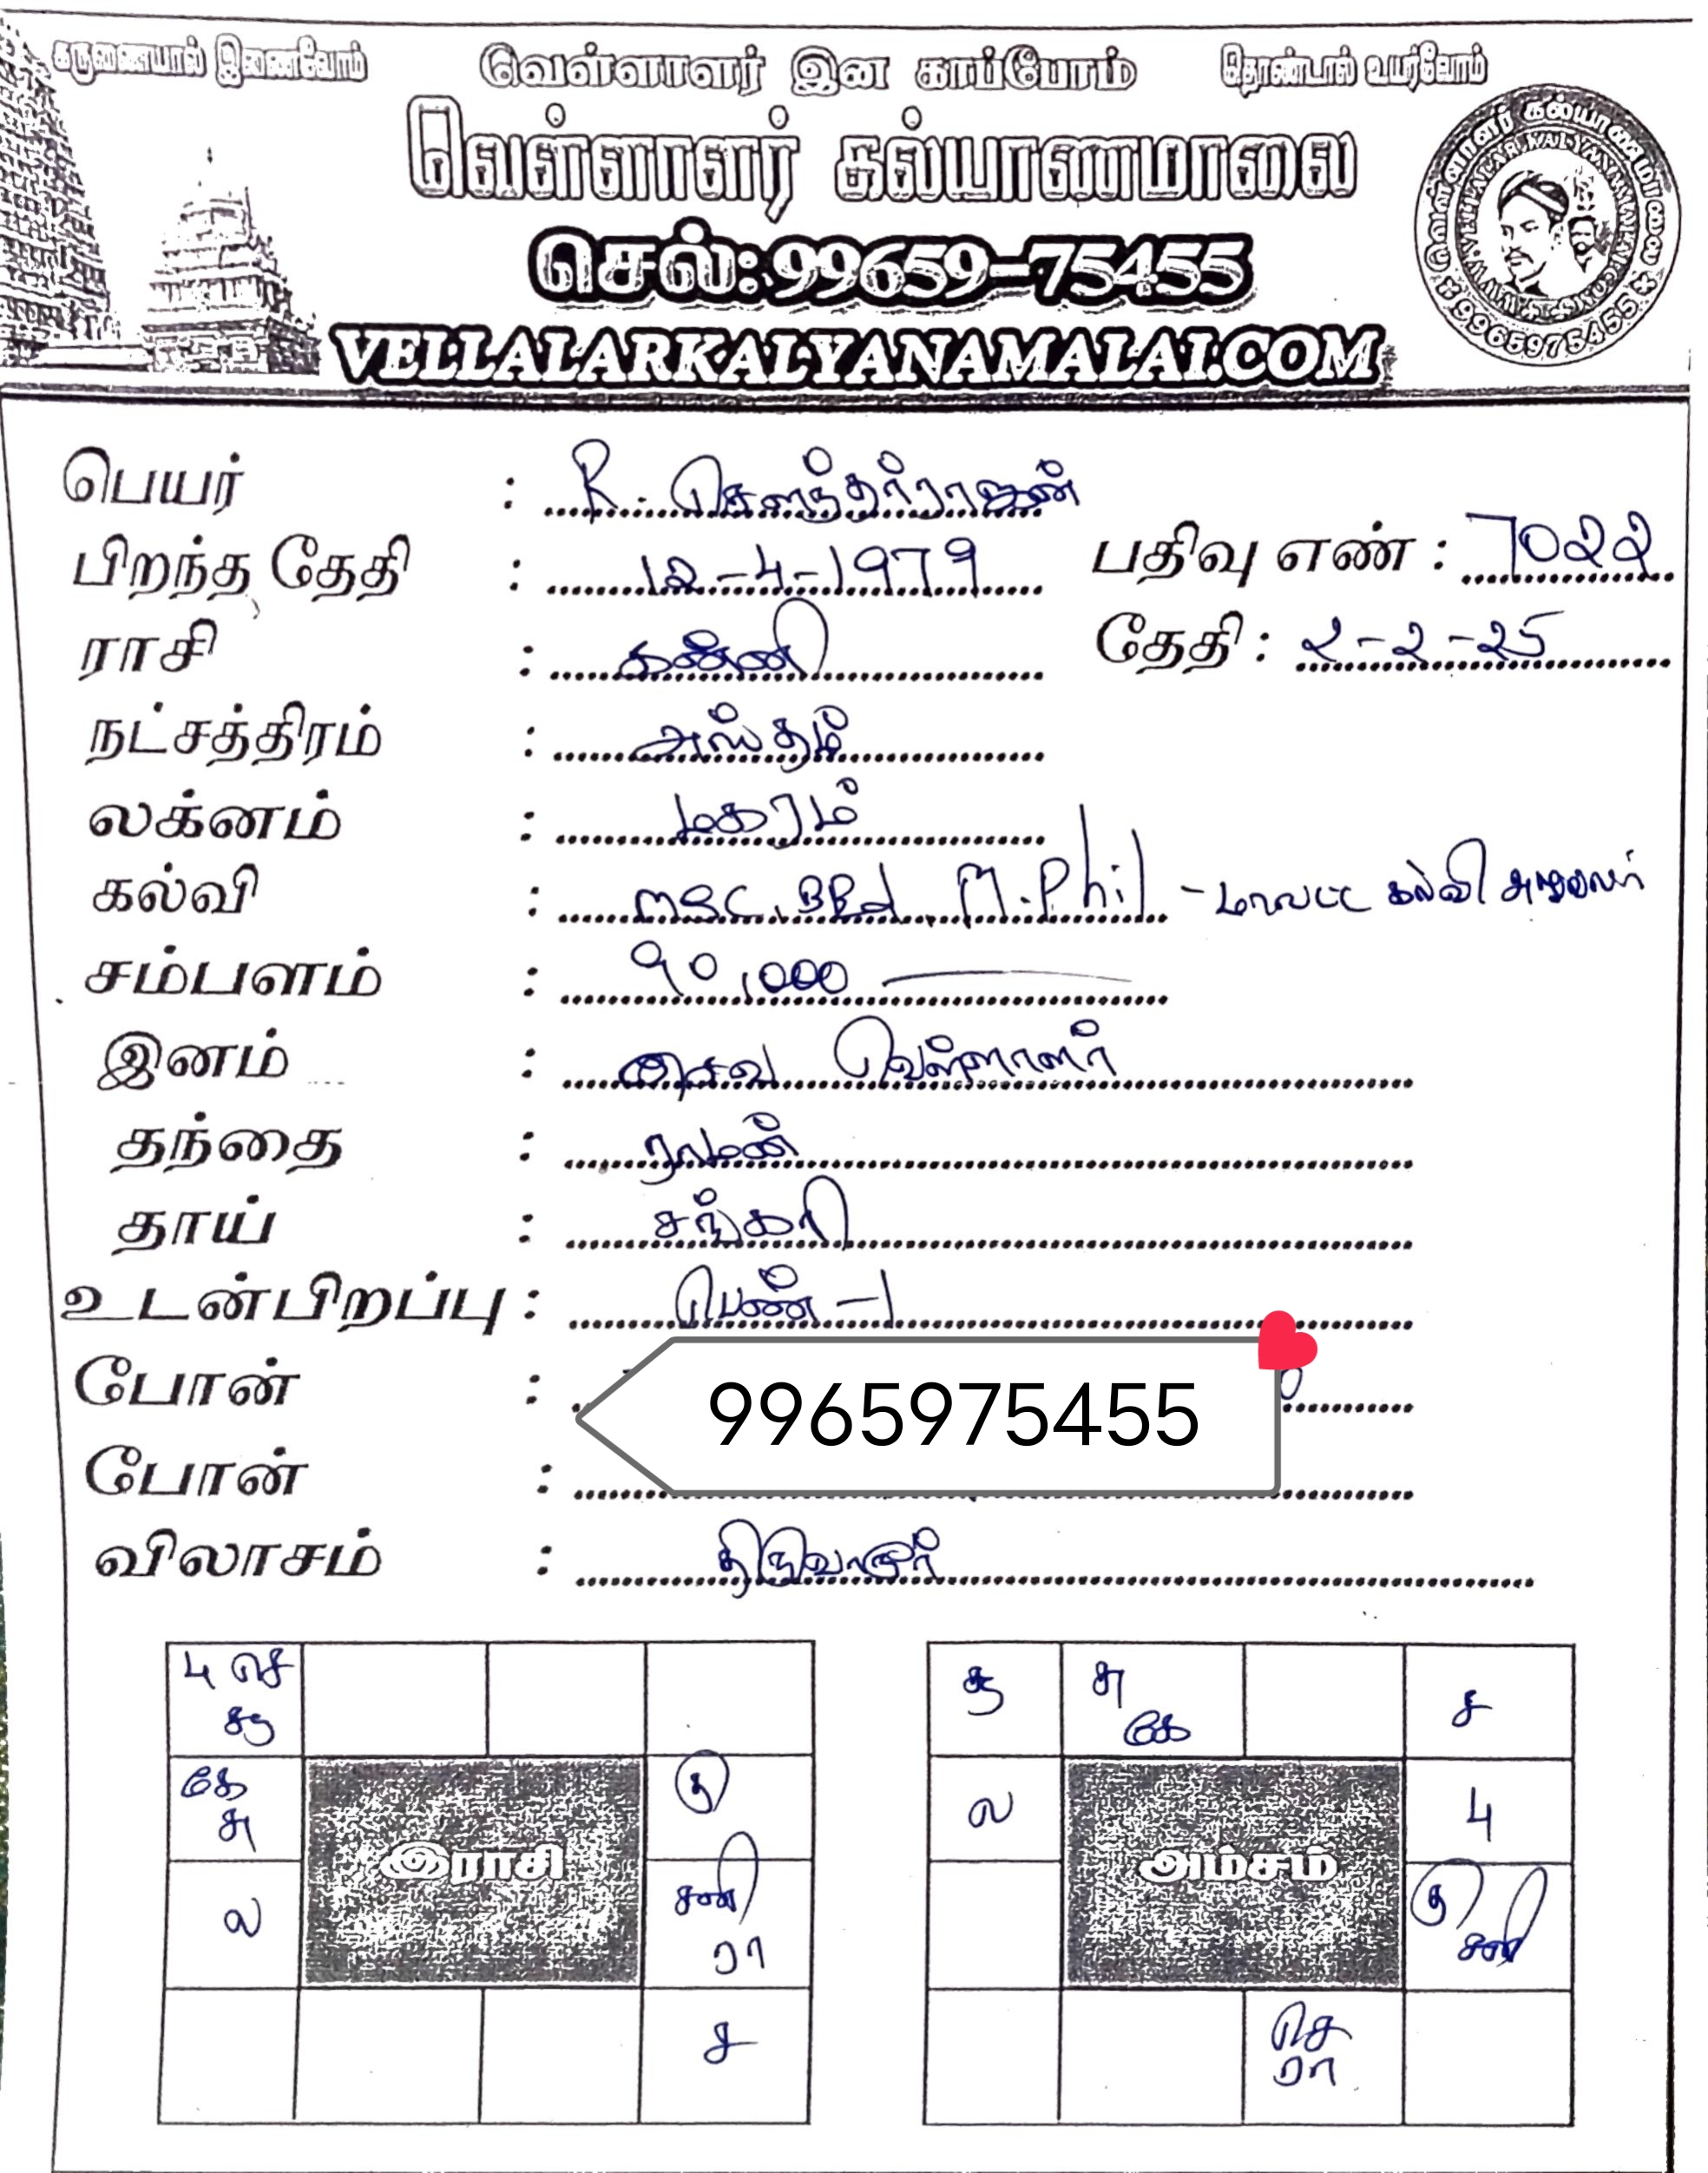 கருணையால் இணைவோம் வெள்ளாளர் இன காப்போம் தொண்டால் உயர்வோம்
வெள்ளாளர் கல்யாணமாலை
செல்:99659-75455
VELLALARKALYANAMALAI.COM
வெள்ளாளர் கல்யாணமாலை
WWW.VELLALARKALYANAMALAI.COM
9965975455
பெயர் : R. சௌந்தர்ராஜன்
பிறந்த தேதி : 12-4-1979 பதிவு எண் : 7022
ராசி : கன்னி தேதி : 2-2-25
நட்சத்திரம் : அஸ்தம்
லக்னம் : மகரம்
கல்வி : MSC. BEd. M.Phil - மாவட்ட கல்வி அலுவலர்
சம்பளம் : 90,000
இனம் : சைவ வெள்ளாளர்
தந்தை : ராமன்
தாய் : சங்கரி
உடன்பிறப்பு : பெண் -1
போன் : 9965975455
போன் :
விலாசம் : திருவாரூர்
பு செ
சூ
கே
சு
ல
இராசி
கு
சனி
ரா
ச
சூ
சு
கே
ச
ல
அம்சம்
பு
கு
சனி
செ
ரா